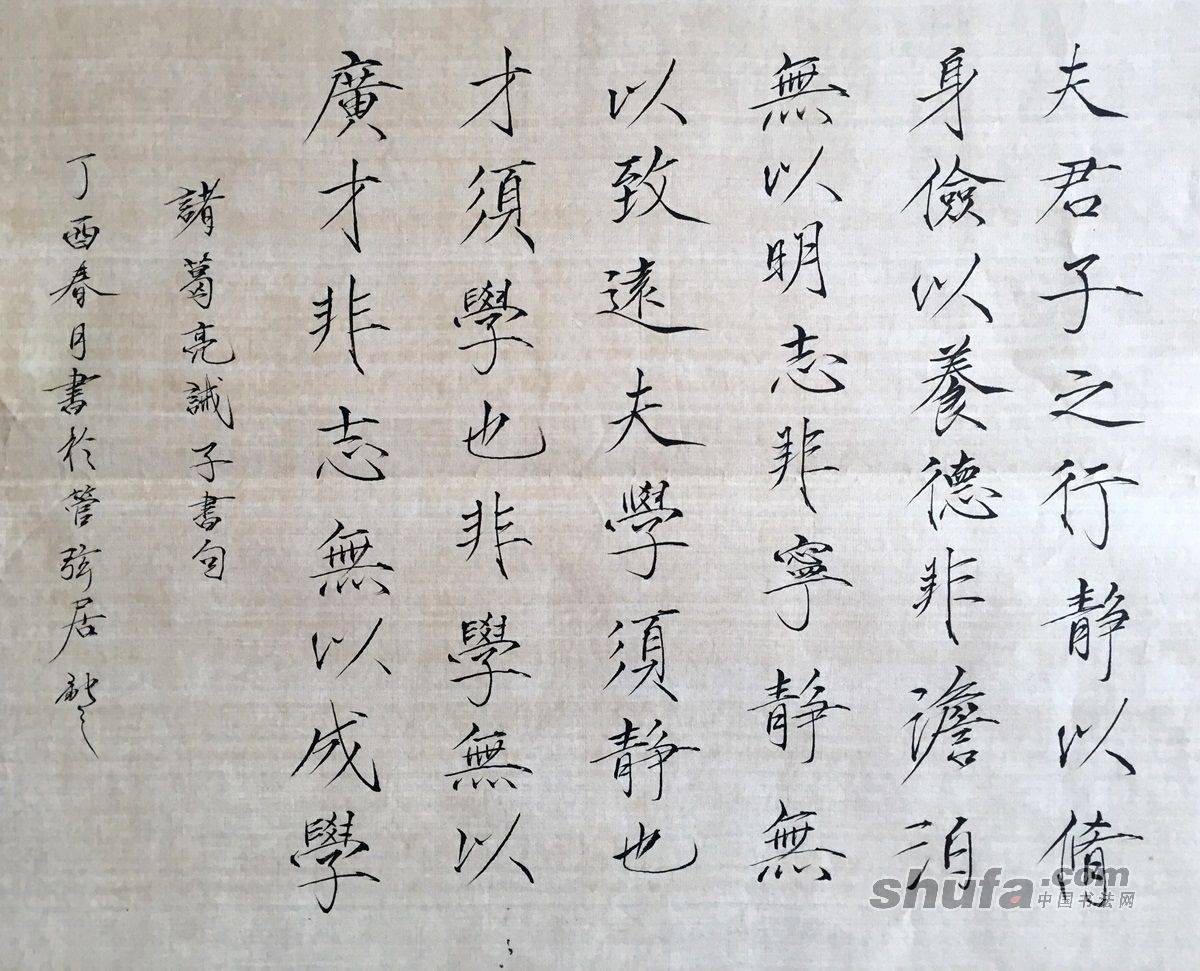 夫君子之行静以脩
身儉以養德非澹泊
無以明志非寧静無
以致遠夫學須静也
才須學也非學無以
廣才非志無以成學
諸葛亮誡子書句
丁酉春月書於管弦居
shufa.com
中国书法网